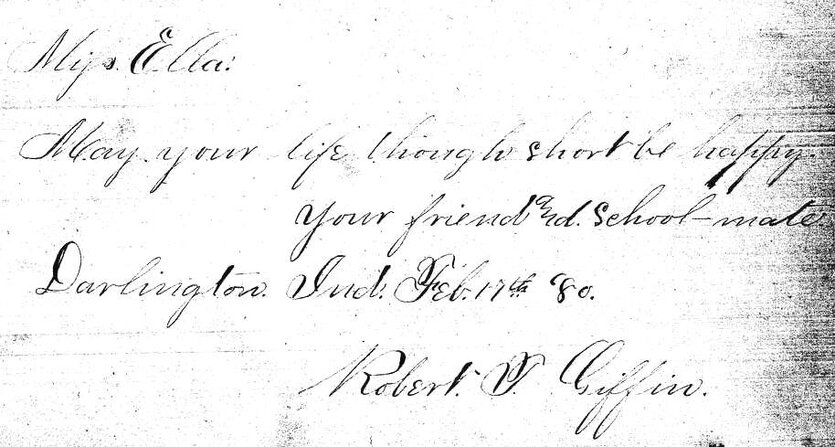 Miss Ella:
May your life though short be happy.
Your friend and. School-mate.
Darlington. Ind. Feb. 17th 80.
Robert. T. Giffin.